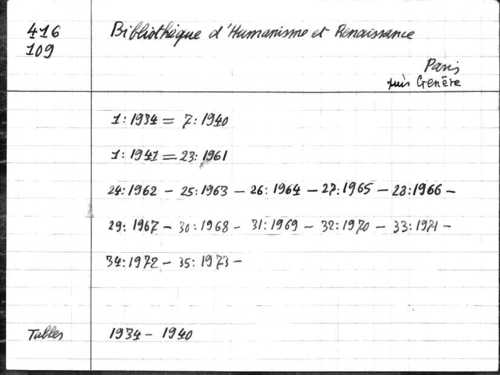 416
109
Bibliothèque d'Humanisme et Renaissance
Paris
puis Genève
1: 1934 = 7: 1940
1: 1941 = 23: 1961
24: 1962 - 25: 1963 - 26: 1964 - 27: 1965 - 28: 1966 -
29: 1967 - 30: 1968 - 31: 1969 - 32: 1970 - 33: 1971 -
34: 1972 - 35: 1973 -
Tables 1934 - 1940